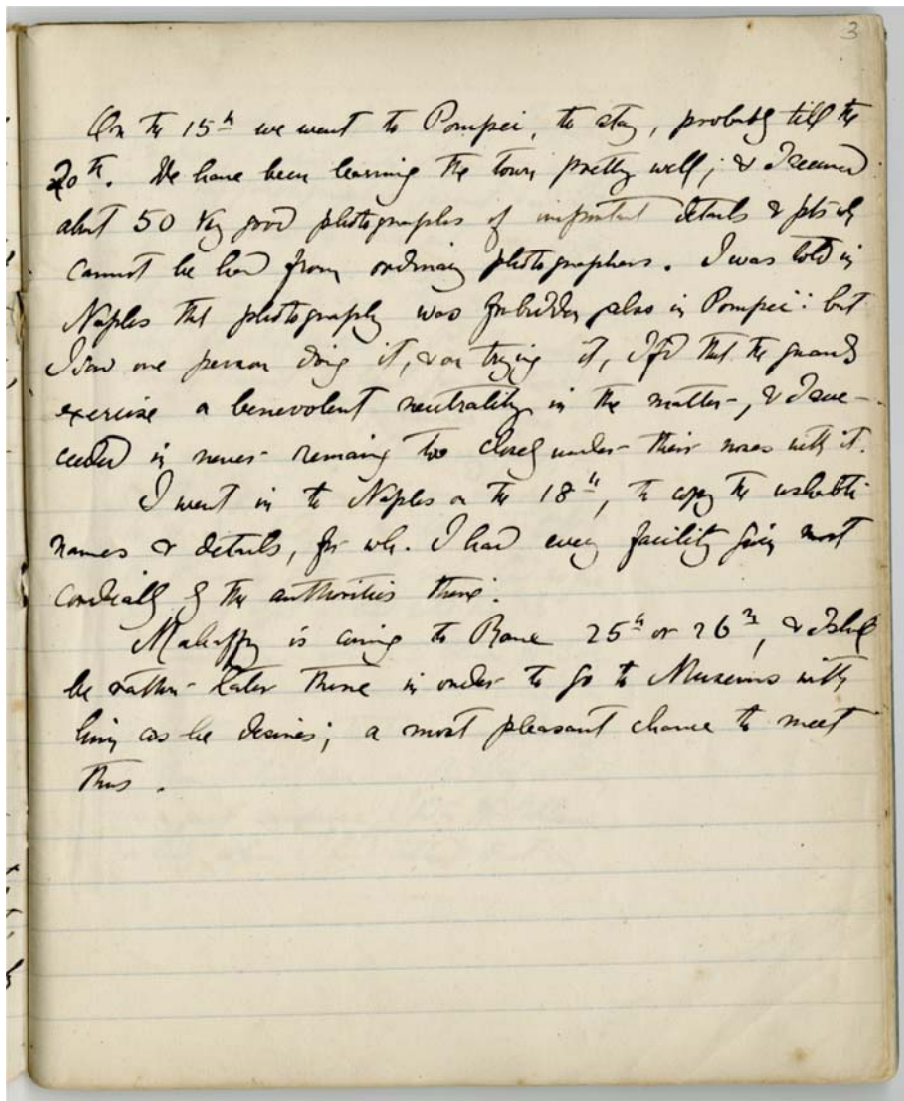 3
On the 15th we went to Pompei, to stay, probably till the
20th. We have been learning the town pretty well; & I secured
about 50 very good photographs of important details & pts wh
cannot be had from ordinary photographers. I was told in
Naples that photography was forbidden also in Pompei: but
I saw one person doing it, & on trying it, I fd that the guards
exercise a benevolent neutrality in the matter, & I suc-
ceeded in never remaing too closely under their noses with it.
I went in to Naples on the 18th, to copy the ushabti
names & details, for wh. I had every facility most
cordially by the authorities there.
Mahaffy is coming to Rome 25th or 26th, & I shd
be rather later there in order to go to Museums with
him as he desires; a most pleasant chance to meet
thus.